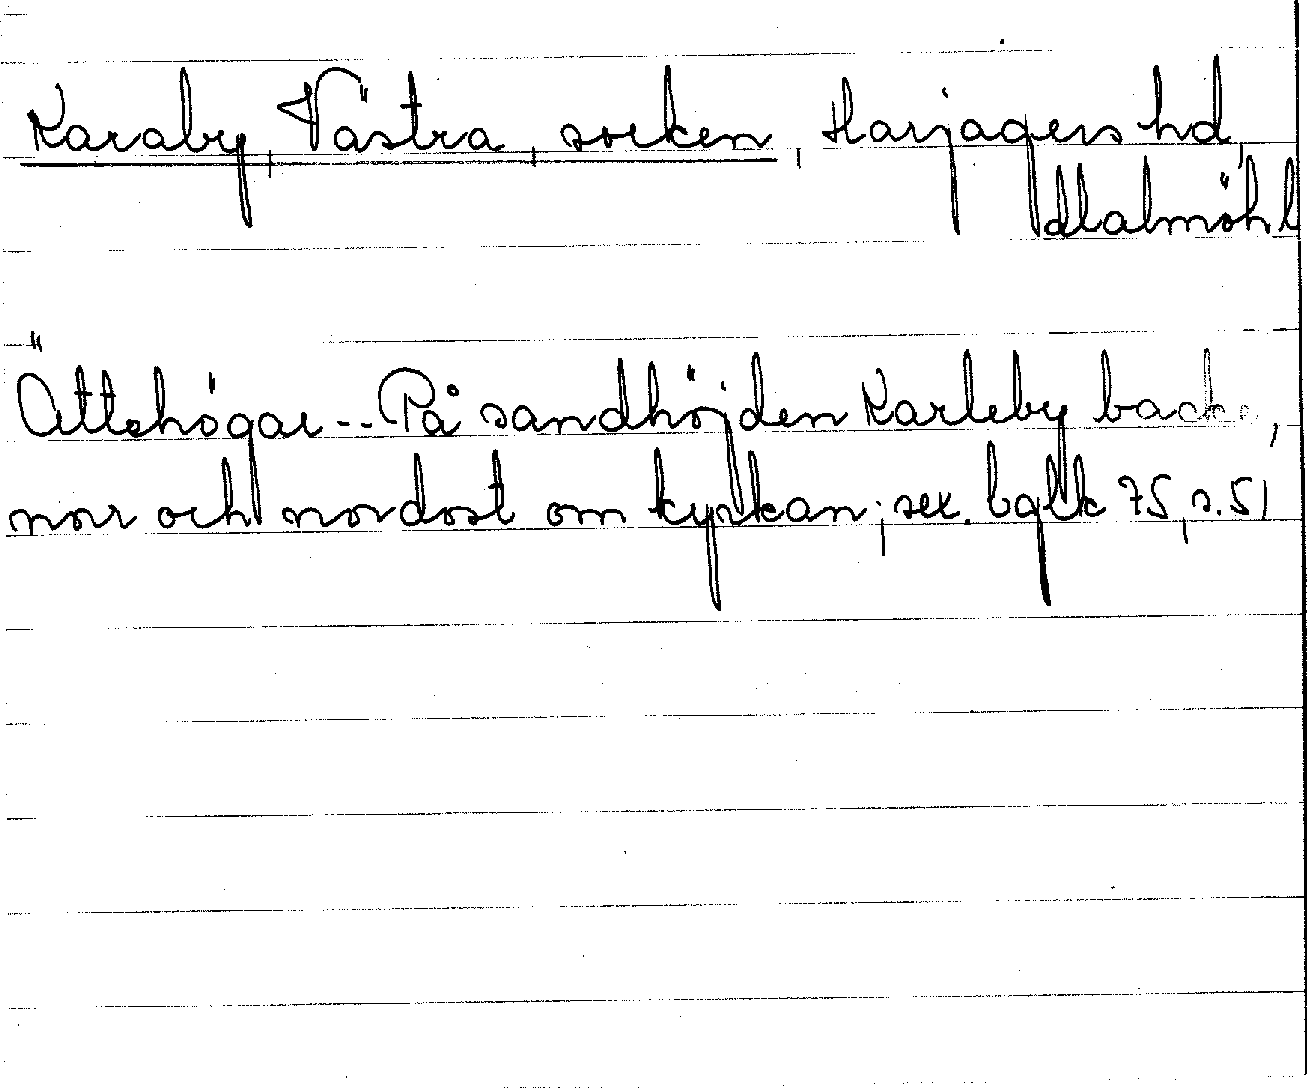 Karaby, Västra, socken, Harjagers hd,
Malmöhl
Ättehögar -- På sandhöjden Karleby backe,
norr och nordost om kyrkan; sex. bglk 75, s. 51